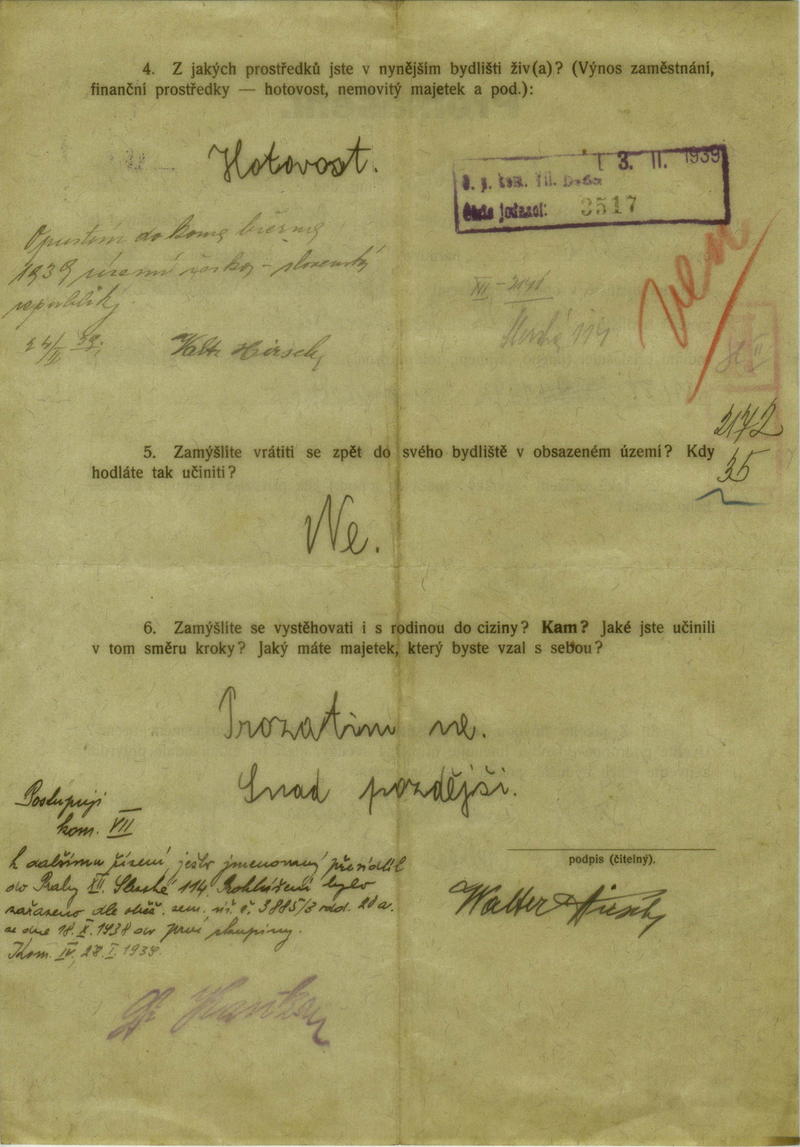 4. Z jakých prostředků jste v nynějším bydlišti živ(a)? (Výnos zaměstnání,
finanční prostředky — hotovost, nemovitý majetek a pod.):
Hotovost.
13. II. 1939
Číslo jednací: 3517
Opustím do konce března
1939 území česko-slovenský
republiky.
24/II 39.
Walter Hirsch
XII
2172
35
5. Zamýšlíte vrátiti se zpět do svého bydliště v obsazeném území? Kdy
hodláte tak učiniti?
Ne.
6. Zamýšlíte se vystěhovati i s rodinou do ciziny? Kam? Jaké jste učinili
v tom směru kroky? Jaký máte majetek, který byste vzal s sebou?
Prozatim ne.
Snad pozdějši.
Postupuji
kom. VII
k dalšímu řízení, ježto jmenovaný přesídlil
do Prahy XII. Slezská 114. Rozhlášení bylo
zařazeno dle oběž. zem. úř. č. 3885/3 odd. 20 a.
ze dne 18. X. 1938 do první skupiny.
Kom. IV, 28. I. 1939.
podpis (čitelný).
Walter Hirsch